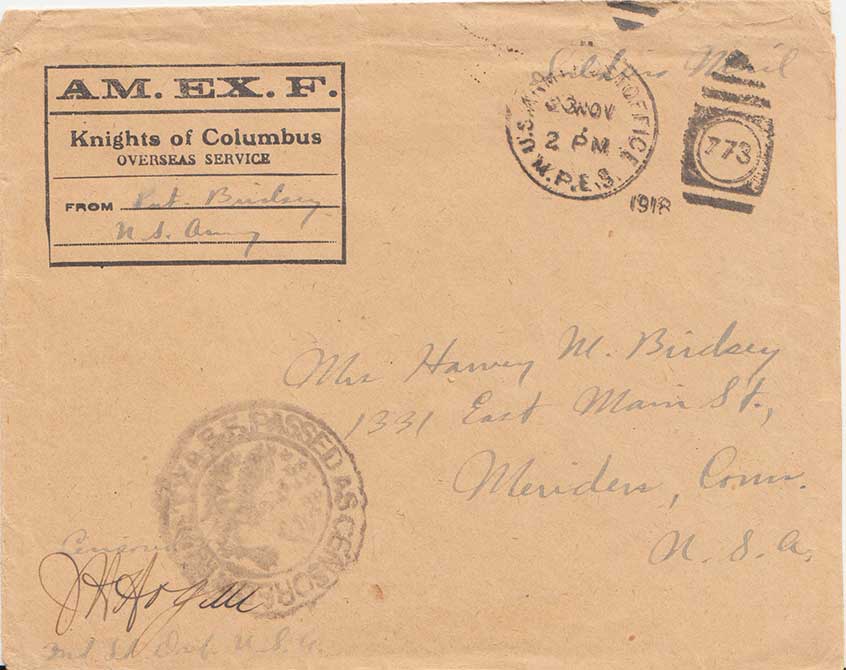 Soldiers Mail
AM. EX. F.
Knights of Columbus
OVERSEAS SERVICE
FROM Pvt. Birdsey
U.S. Army
U.S. ARMY POST OFFICE
23 NOV
2 PM
M.P.E.S.
1918
773
Mrs Harvey M. Birdsey
1331 East Main St.,
Meriden, Conn.
U. S. A.
PASSED AS CENSORED
Censored
2nd Lt Inf. U.S.A.